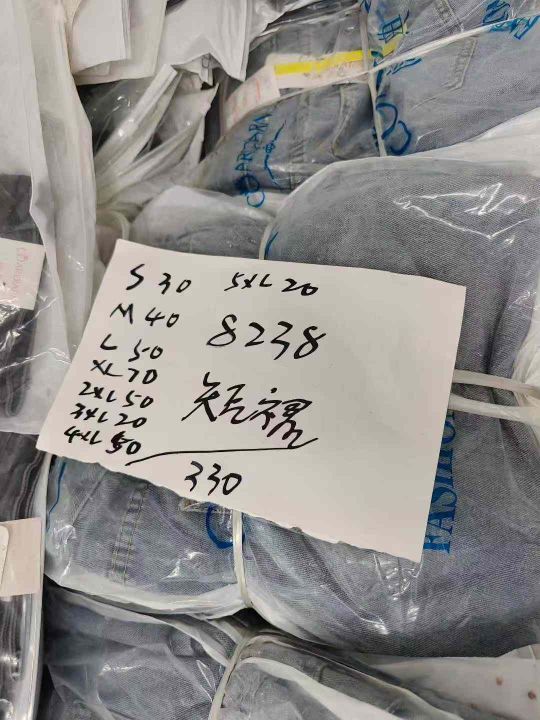 S 30 5XL 20
M 40
8238
L 50
XL 70
2XL 50
短裤
3XL 20
4XL 50
330
FASHION